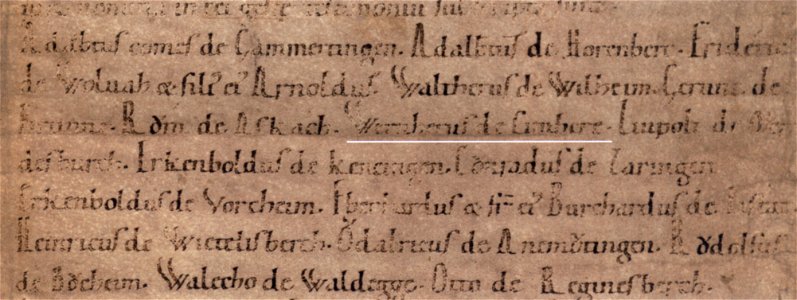 Adalbtus comes de Gammertingen. Adalbtus de Horenberc. Frideric
de Woluah & fili' ei' Arnoldus. Waltherus de Wilheim. Gerunc de
Rom de Askach. Wernherus de Cimbere. Lupolt de
desburch. Erkenboldus de Kencingen. Cönradus de Zaringen
Erkenboldus de Vorcheim. Eberhardus & fr̄ ei' Burchardus de
Heinricus de Wittelisberch. Ödalricus de Anemötingen. Rödolfus
de Böcheim. Walecho de Waldegge. Otto de Regnesberch.